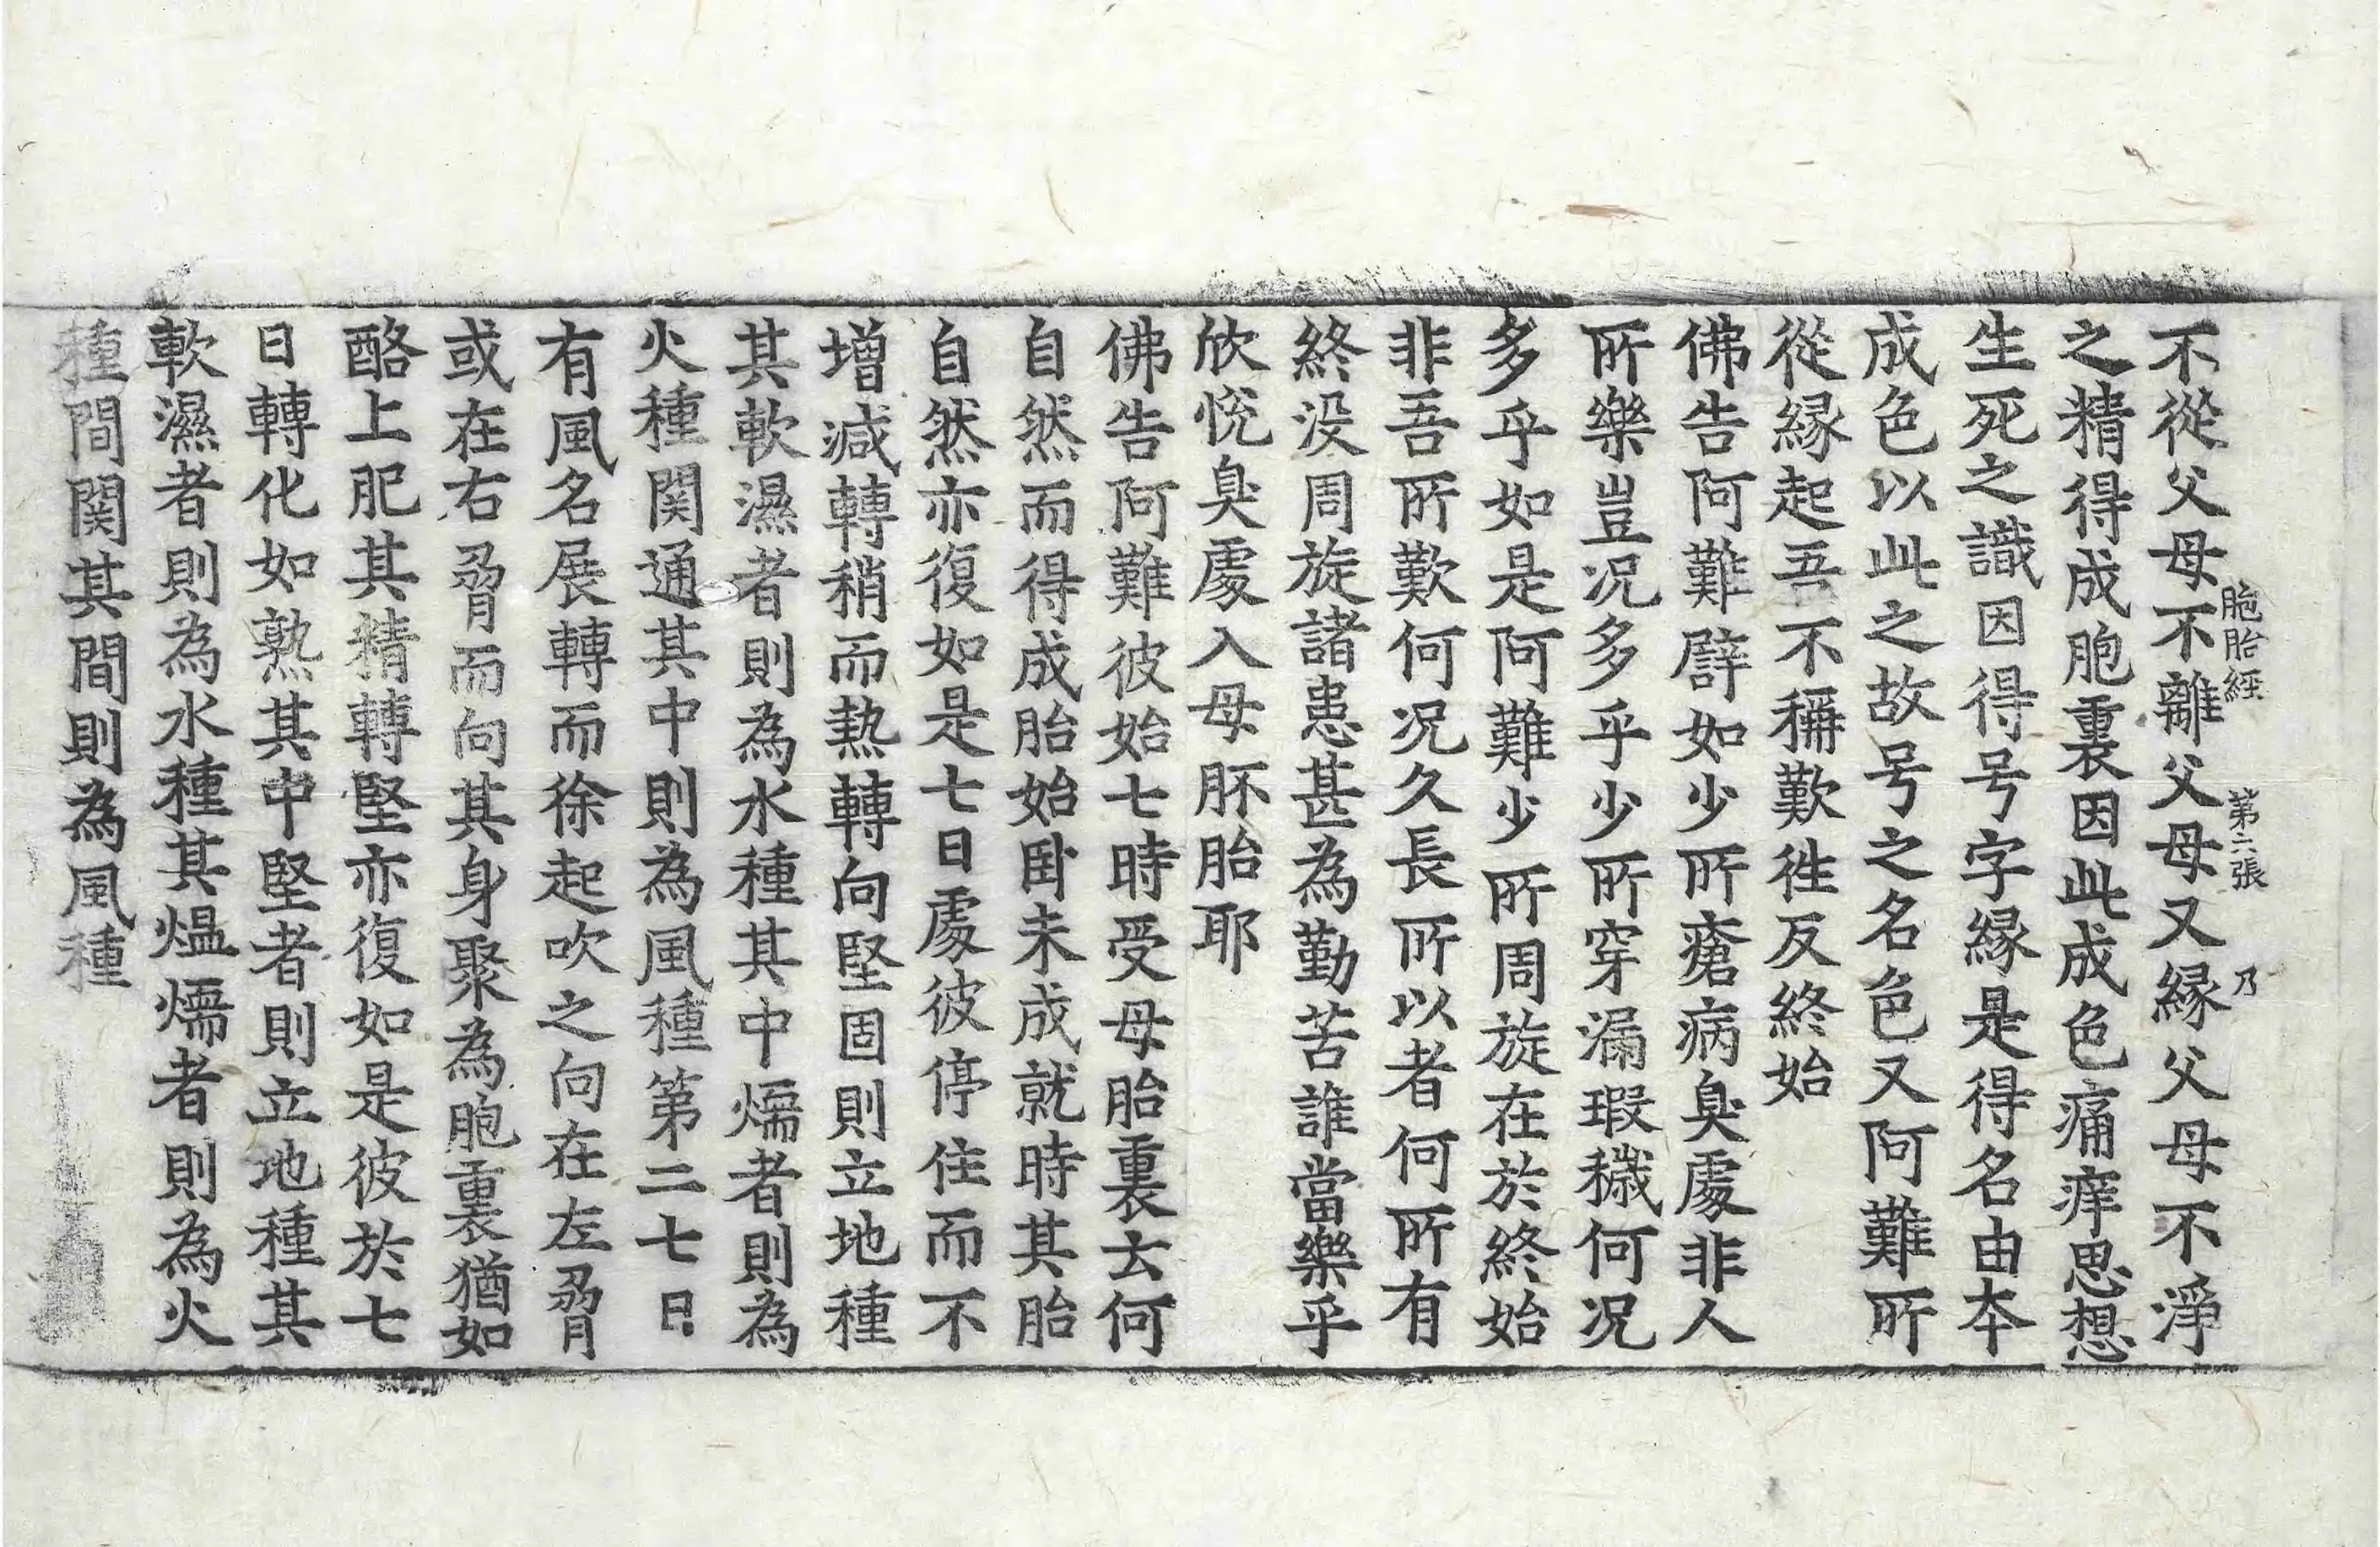 不從父母不離父母又縁父母不淨
胞胎經 第六張 乃
之精得成胞裏因此成色痛痒思想
生死之識因得号字縁是得名由本
成色以此之故号之名色又阿難所
從縁起吾不稱歎徃反終始
佛告阿難譬如少所瘡病臭處非人
所樂豈况多乎少所穿漏瑕穢何况
多乎如是阿難少所周旋在於終始
非吾所歎何况久長所以者何所有
終没周旋諸患甚為勤苦誰當樂乎
欣恱臭處入母胚胎耶
佛告阿難彼始七時受母胎裏云何
自然而得成胎始卧未成就時其胎
自然亦復如是七日處彼停住而不
增減轉稍而熱轉向堅固則立地種
其軟濕者則為水種其中煗者則為
火種関通其中則為風種第二七日
有風名展轉而徐起吹之向在左脅
或在右脅而向其身聚為胞裏猶如
酪上肥其精轉堅亦復如是彼於七
日轉化如熟其中堅者則立地種其
軟濕者則為水種其熅煗者則為火
種間関其間則為風種